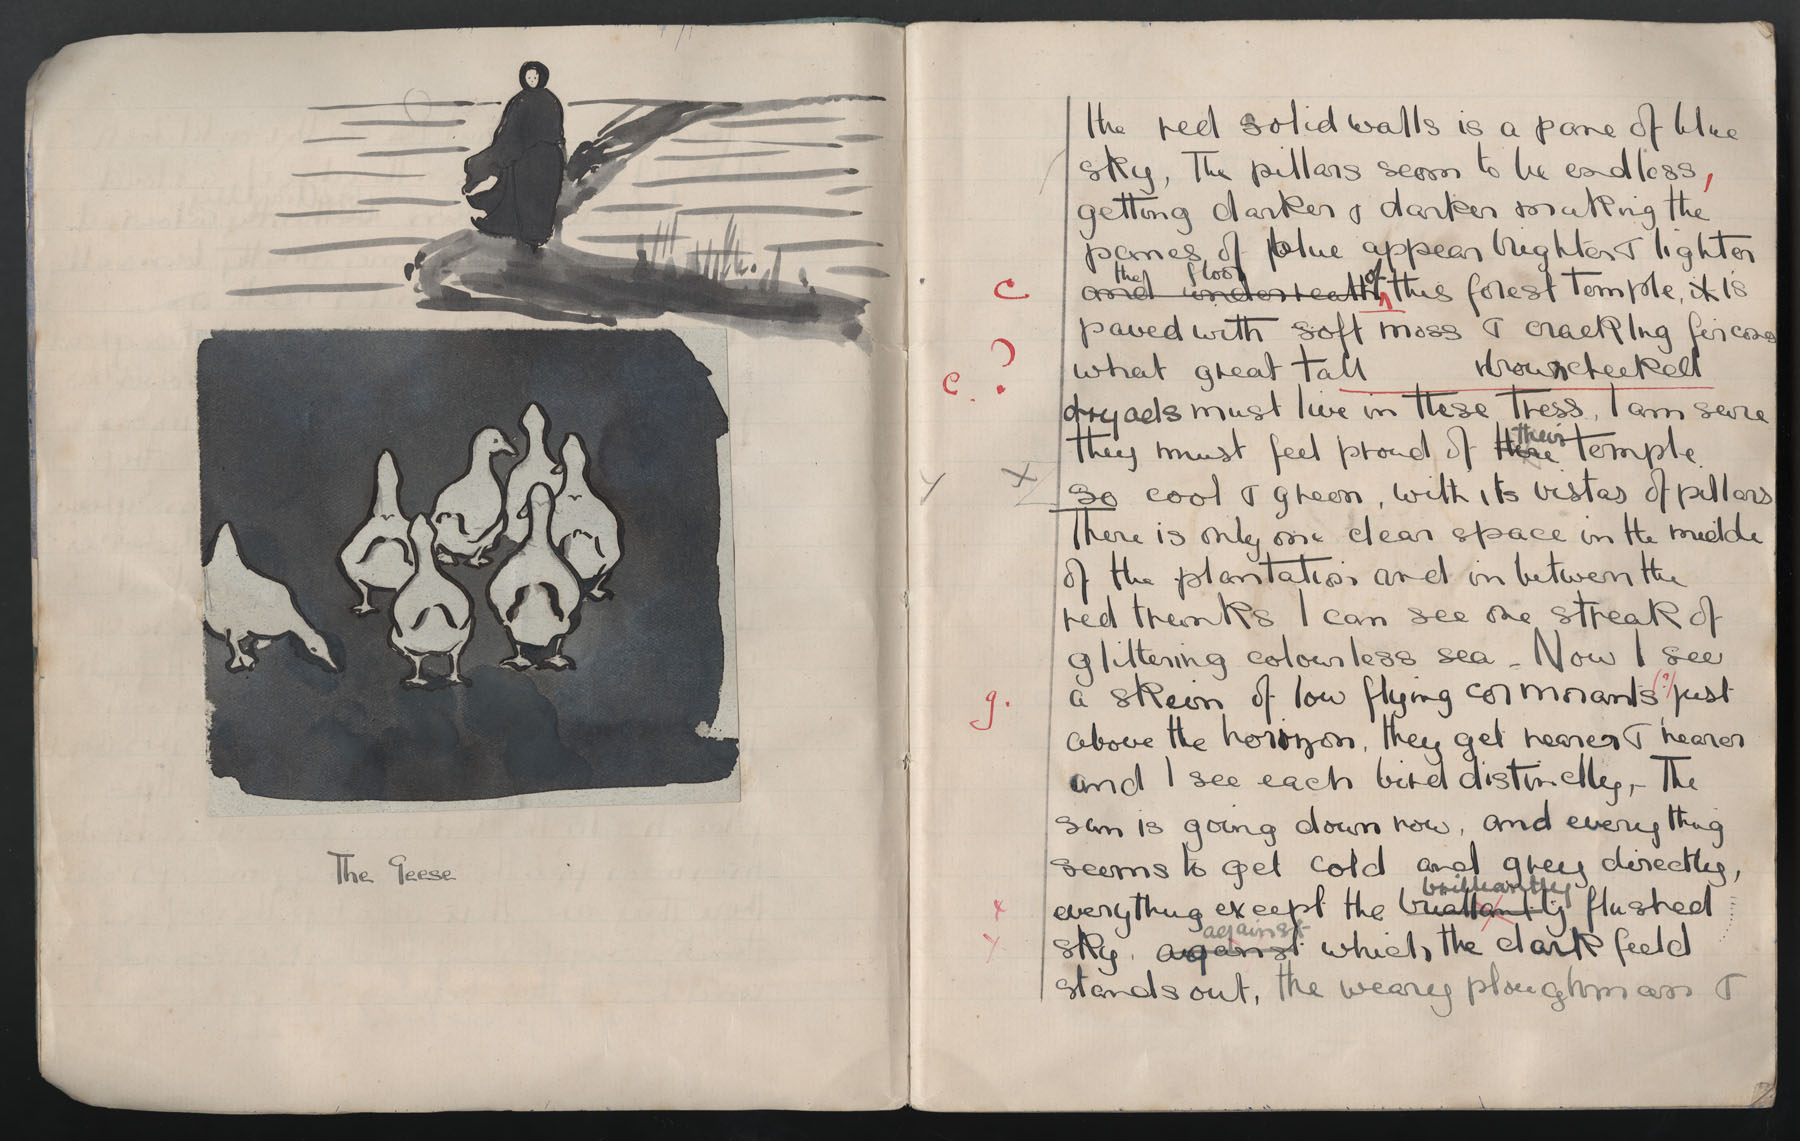 The Geese
the red solid walls is a pane of blue
sky, The pillars seem to be endless,
getting darker & darker making the
panes of blue appear brighter & lighter
the floor of
and underneath this forest temple, it is
paved with soft moss & crackling fircones
what great tall browncheeked
dryads must live in these tress, I am sure
they must feel proud of there their temple
so cool & green, with its vistas of pillars
There is only one clear space in the middle
of the plantation and in between the
red trunks I can see one streak of
glittering colourless sea - Now I see
a skein of low flying cormorants (?) just
above the horizon, they get nearer & nearer
and I see each bird distinctly, - The
sun is going down now, and every thing
seems to get cold and grey directly,
brilliantly
everything except the flushed
against
sky, against which the dark field
stands out, the weary ploughman &
c
?
c.
y x
g.
x
y